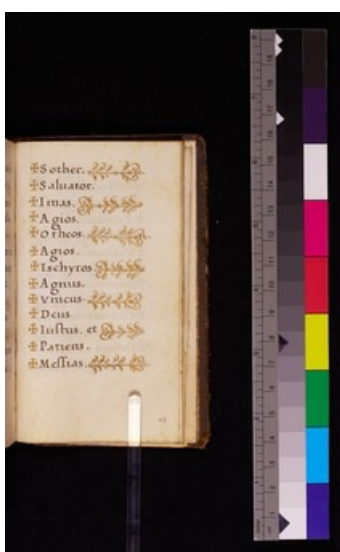 ✠Sother.
✠Saluator.
✠Imas.
✠Agios.
✠Otheos.
✠Agios.
✠Ischyros
✠Agnus.
✠Vnicus.
✠Deus
✠Iuſtus. et
✠Patiens.
✠Meſſias.